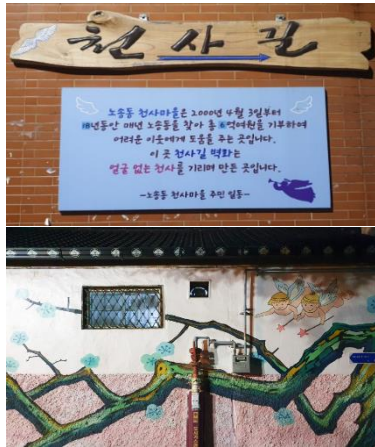 천사길
노송동 천사마을은 2000년 4월 3일부터
18년동안 매년 노송동을 찾아 총 6억여원을 기부하여
어려운 이웃에게 도움을 주는 곳입니다.
이 곳 천사길 벽화는
얼굴 없는 천사를 기리며 만든 곳입니다.
-노송동 천사마을 주민 일동-